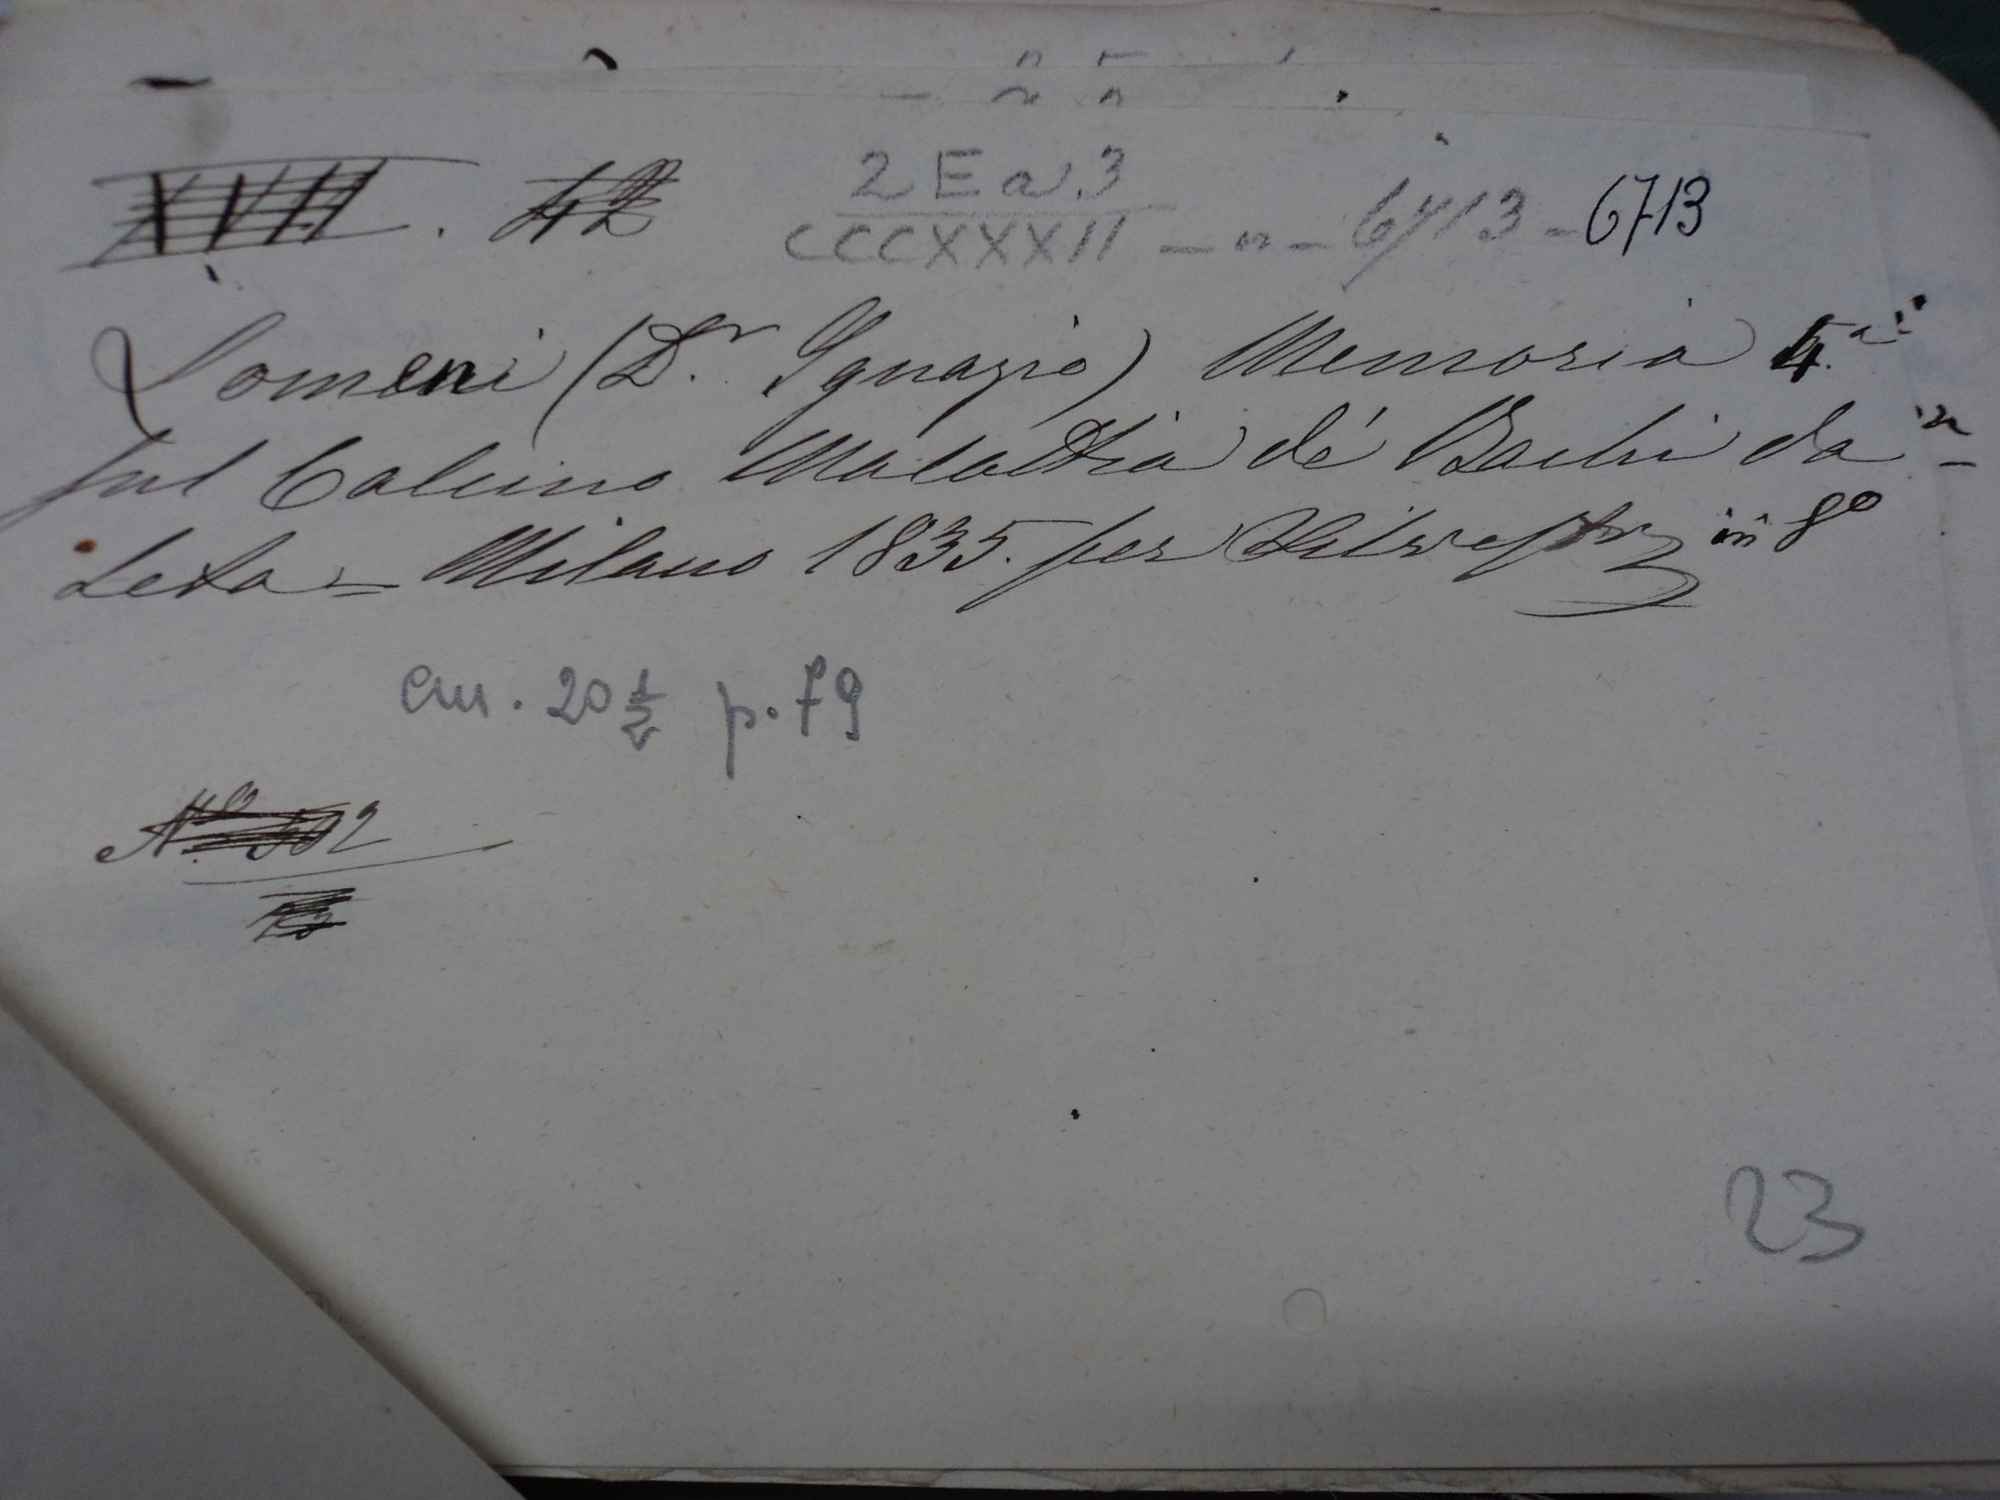 XVIII. 42 2 E a.3
CCCXXXII - n - 6713 - 6713
Lomeni (D.r Ignazio) Memoria 4.a
sul Calcino Malattia dé Bachi da
Seta = Milano 1835. per Silvestri in 8º
cm. 20 1/2 p. 79
Nº. 502
23